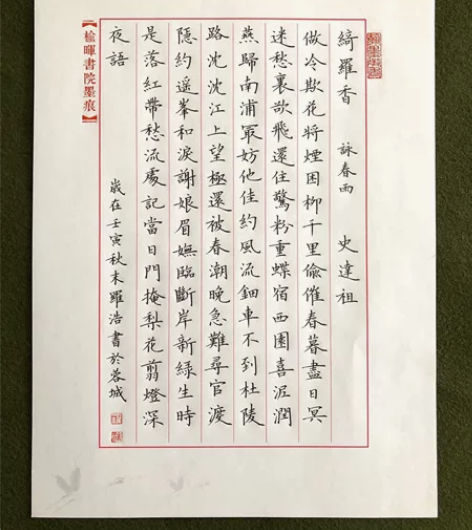 綺羅香　詠春雨　史達祖
做冷欺花將煙困柳千里偷催春暮盡日冥
迷愁裏欲飛還住驚粉重蝶宿西園喜泥潤
燕歸南浦最妨他佳約風流鈿車不到杜陵
路沈沈江上望極還被春潮晚急難尋官渡
隱約遙峯和淚謝娘眉嫵臨斷岸新綠生時
是落紅帶愁流處記當日門掩梨花翦燈深
夜語
歲在壬寅秋末羅浩書於蓉城
【榆暉書院墨痕】